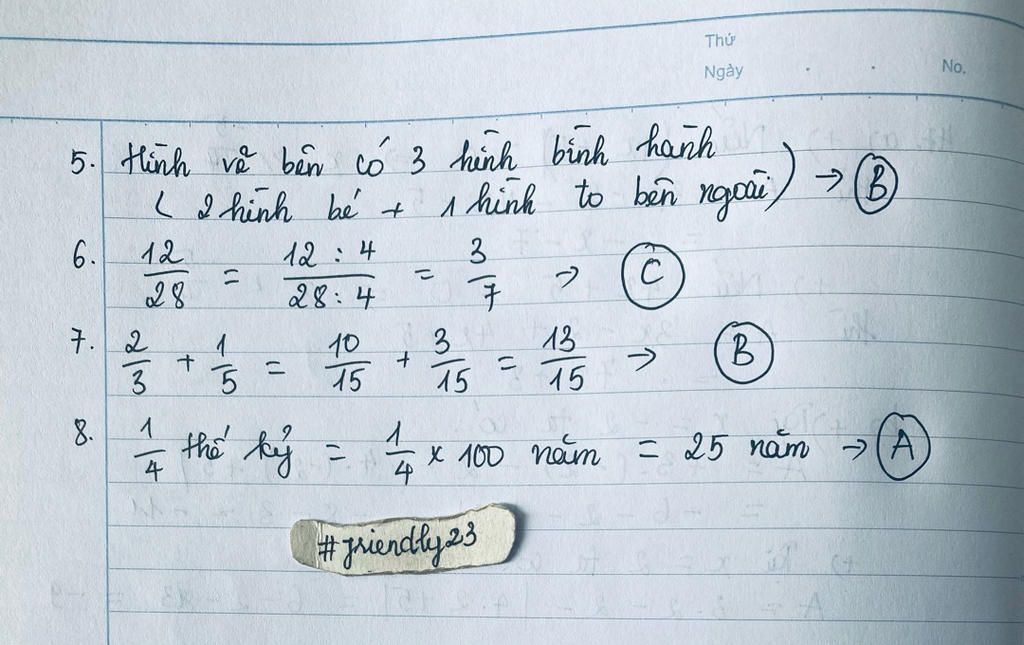 Thứ
Ngày . . No.
5. Hình vẽ bên có 3 hình bình hành
( 2 hình bé + 1 hình to bên ngoài) → B
6. 12/28 = 12 : 4/28 : 4 = 3/7 → C
7. 2/3 + 1/5 = 10/15 + 3/15 = 13/15 → B
8. 1/4 thế kỷ = 1/4 × 100 năm = 25 năm → A
#friendly23